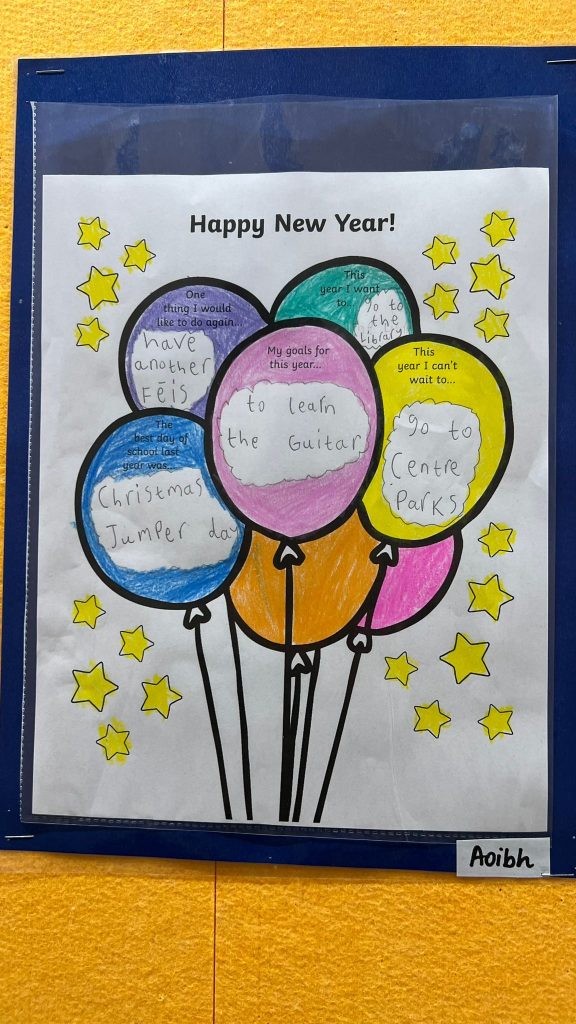 Happy New Year!
One
thing I would
like to do again...
have
another
Fēis
This
year I want
to...
go to
the
library
My goals for
this year...
to learn
the Guitar
This
year I can't
wait to...
go to
Centre
Parks
The
best day of
school last
year was...
Christmas
Jumper day
Aoibh